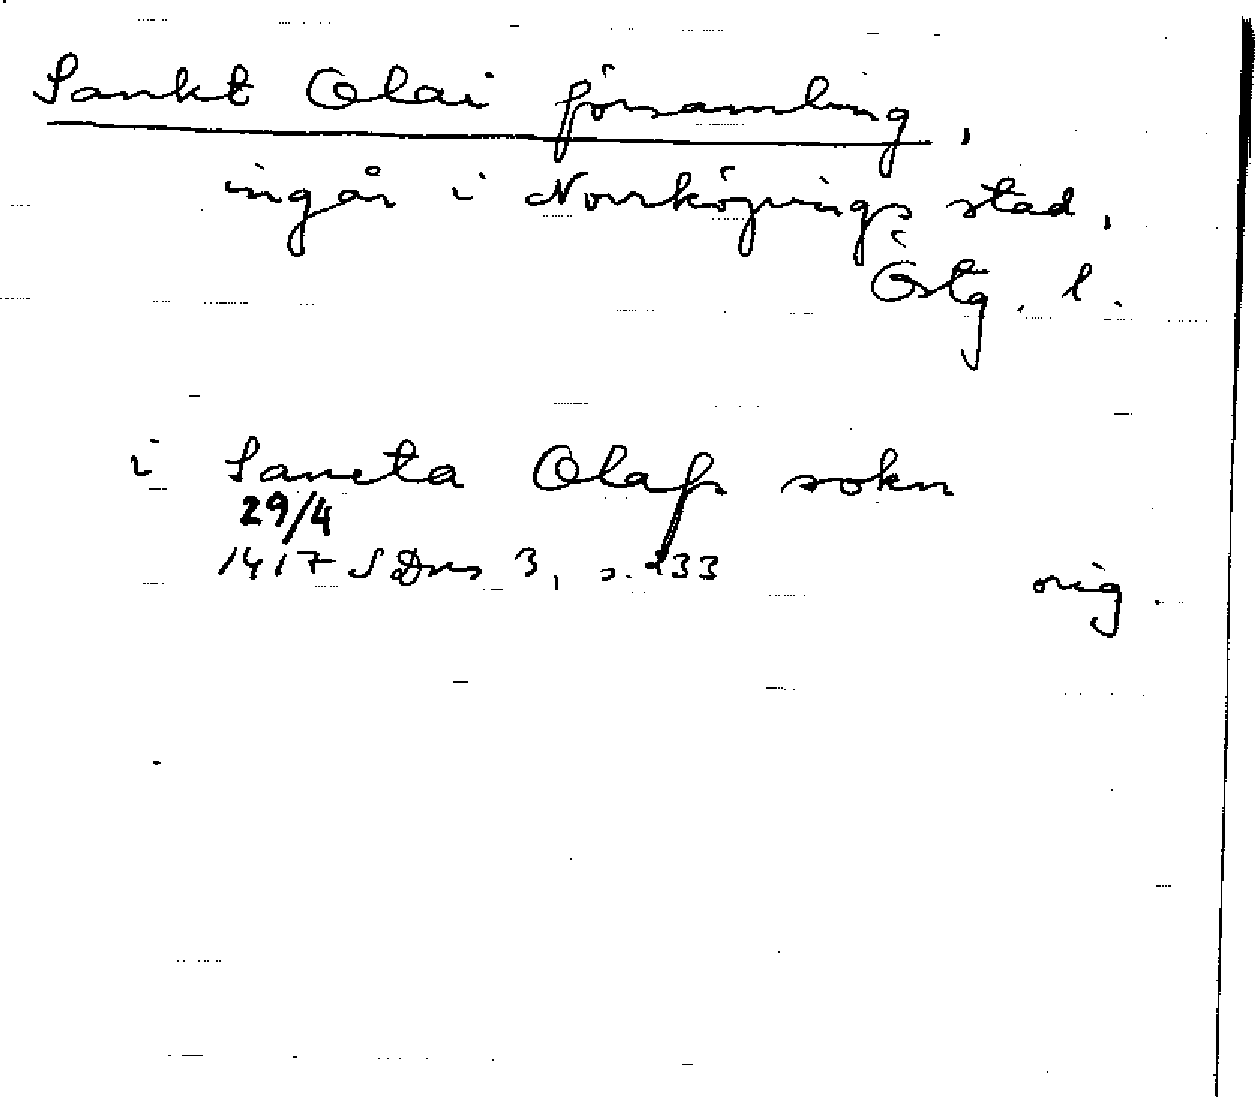 Sankt Olai församling,
ingår i Norrköpings stad,
Östg. l.
i Sancta Olafs sokn
29/4
1417 SDns 3, s. 233
orig.